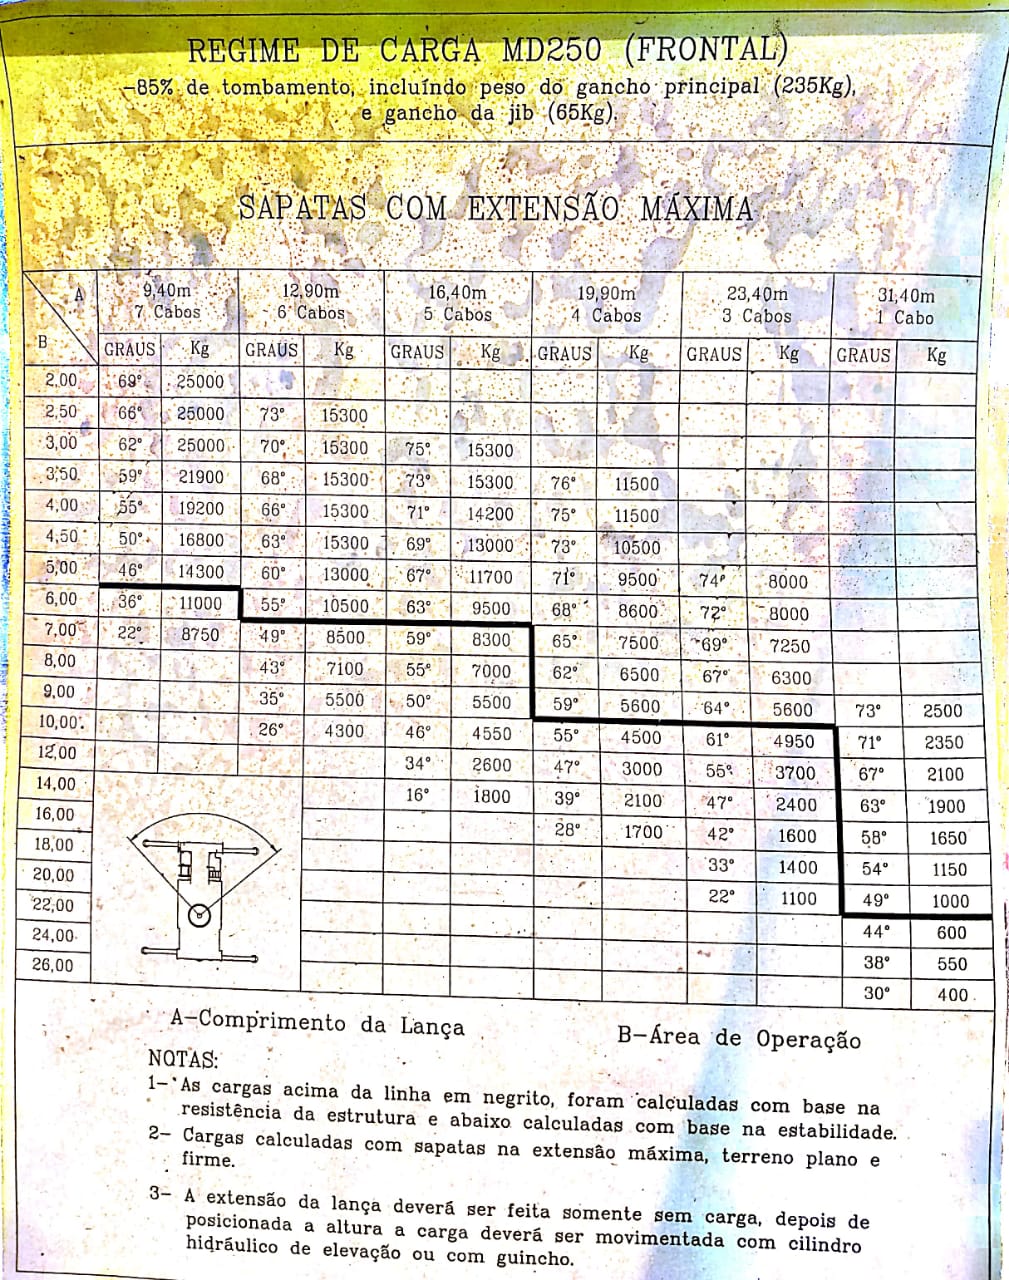 REGIME DE CARGA MD250 (FRONTAL)
-85% de tombamento, incluíndo peso do gancho principal (235Kg),
e gancho da jib (65Kg).
SAPATAS COM EXTENSÃO MÁXIMA
A 9,40m 12,90m 16,40m 19,90m 23,40m 31,40m
7 Cabos 6 Cabos 5 Cabos 4 Cabos 3 Cabos 1 Cabo
B GRAUS Kg GRAUS Kg GRAUS Kg GRAUS Kg GRAUS Kg GRAUS Kg
2,00 69° 25000
2,50 66° 25000 73° 15300
3,00 62° 25000 70° 15300 75° 15300
3,50 59° 21900 68° 15300 73° 15300 76° 11500
4,00 55° 19200 66° 15300 71° 14200 75° 11500
4,50 50° 16800 63° 15300 69° 13000 73° 10500
5,00 46° 14300 60° 13000 67° 11700 71° 9500 74° 8000
6,00 36° 11000 55° 10500 63° 9500 68° 8600 72° 8000
7,00 22° 8750 49° 8500 59° 8300 65° 7500 69° 7250
8,00 43° 7100 55° 7000 62° 6500 67° 6300
9,00 35° 5500 50° 5500 59° 5600 64° 5600 73° 2500
10,00 26° 4300 46° 4550 55° 4500 61° 4950 71° 2350
12,00 34° 2600 47° 3000 55° 3700 67° 2100
14,00 16° 1800 39° 2100 47° 2400 63° 1900
16,00 28° 1700 42° 1600 58° 1650
18,00 33° 1400 54° 1150
20,00 22° 1100 49° 1000
22,00 44° 600
24,00 38° 550
26,00 30° 400
A-Comprimento da Lança B-Área de Operação
NOTAS:
1- As cargas acima da linha em negrito, foram calculadas com base na
resistência da estrutura e abaixo calculadas com base na estabilidade.
2- Cargas calculadas com sapatas na extensão máxima, terreno plano e
firme.
3- A extensão da lança deverá ser feita somente sem carga, depois de
posicionada a altura a carga deverá ser movimentada com cilindro
hidráulico de elevação ou com guincho.